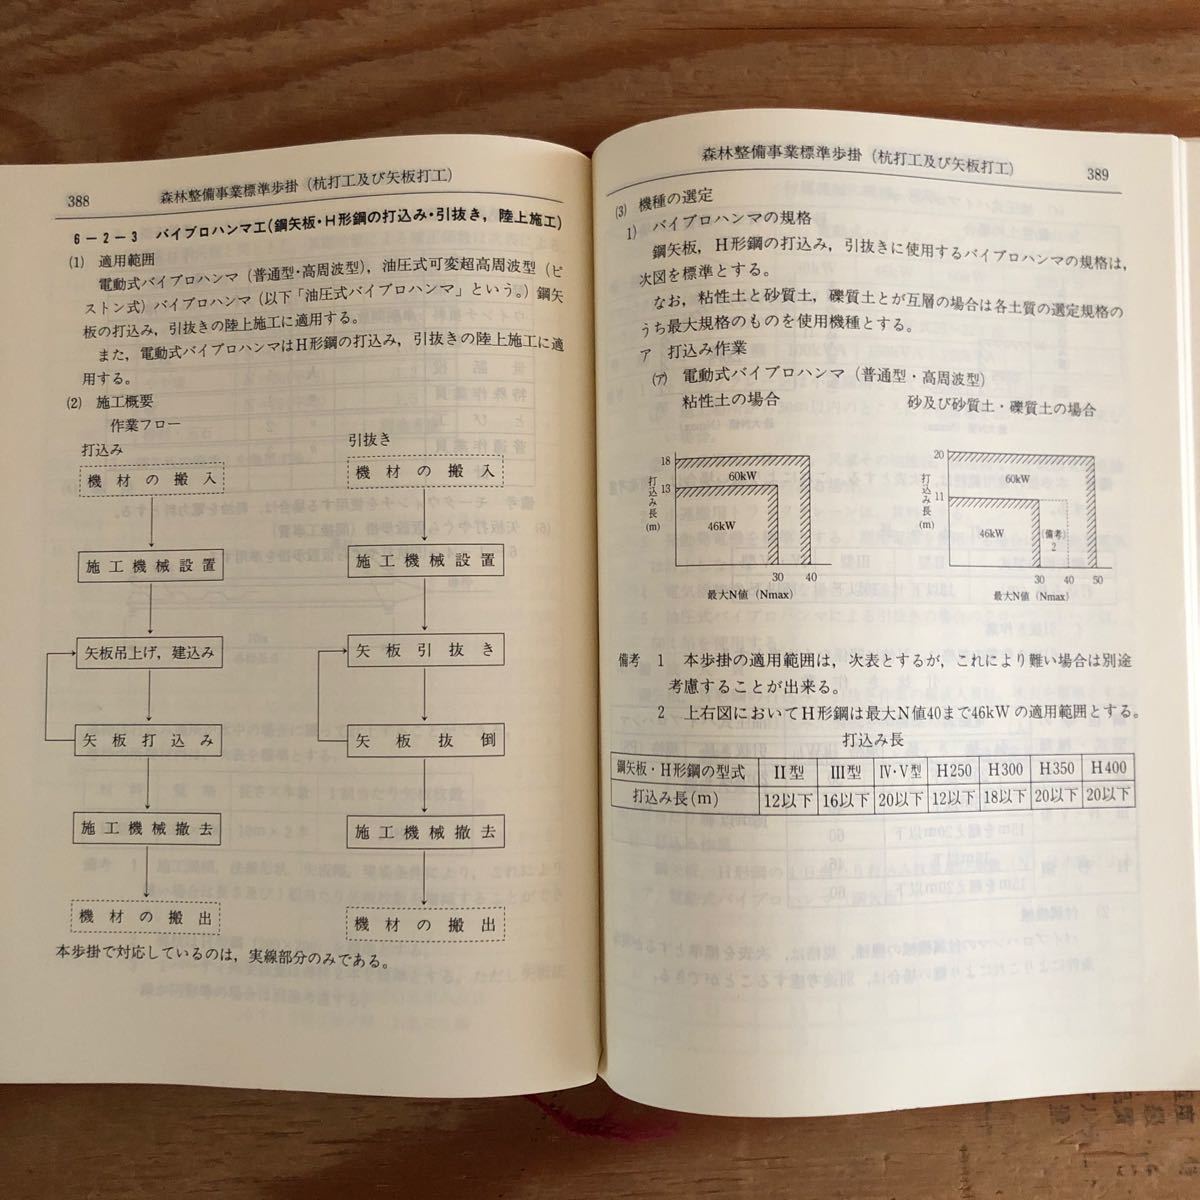 388　森林整備事業標準歩掛（杭打工及び矢板打工）
6－2－3　バイブロハンマ工（鋼矢板・H形鋼の打込み・引抜き，陸上施工）
(1)　適用範囲
電動式バイブロハンマ（普通型・高周波型），油圧式可変超高周波型（ピ
ストン式）バイブロハンマ（以下「油圧式バイブロハンマ」という。）鋼矢
板の打込み，引抜きの陸上施工に適用する。
また，電動式バイブロハンマはH形鋼の打込み，引抜きの陸上施工に適
用する。
(2)　施工概要
作業フロー
打込み
機材の搬入
施工機械設置
矢板吊上げ，建込み
矢板打込み
施工機械撤去
機材の搬出
引抜き
機材の搬入
施工機械設置
矢板引抜き
矢板抜倒
施工機械撤去
機材の搬出
本歩掛で対応しているのは，実線部分のみである。
森林整備事業標準歩掛（杭打工及び矢板打工）　389
(3)　機種の選定
1)　バイブロハンマの規格
鋼矢板，H形鋼の打込み，引抜きに使用するバイブロハンマの規格は，
次図を標準とする。
なお，粘性土と砂質土，礫質土とが互層の場合は各土質の選定規格の
うち最大規格のものを使用機種とする。
ア　打込み作業
(ア)　電動式バイブロハンマ（普通型・高周波型）
粘性土の場合
18
13
打込み長(m)
60kW
46kW
30　40
最大N値（Nmax）
砂及び砂質土・礫質土の場合
20
11
打込み長(m)
60kW
46kW
(備考)
2
30　40　50
最大N値（Nmax）
備考　1　本歩掛の適用範囲は，次表とするが，これにより難い場合は別途
考慮することが出来る。
2　上右図においてH形鋼は最大N値40まで46kWの適用範囲とする。
打込み長
鋼矢板・H形鋼の型式　II型　III型　IV・V型　H250　H300　H350　H400
打込み長(m)　12以下　16以下　20以下　12以下　18以下　20以下　20以下